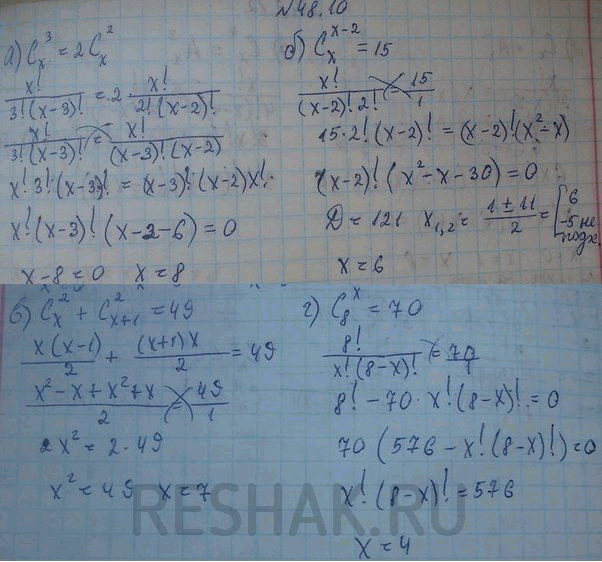 №48.10
а) C_x^3 = 2 C_x^2
x!/(3!(x-3)!) = 2 · x!/(2!(x-2)!)
x!/(3!(x-3)!) = x!/((x-3)!(x-2))
x! 3! (x-3)! = (x-3)! (x-2) x!
x! (x-3)! (x-2-6) = 0
x-8=0 x=8
б) C_x^{x-2} = 15
x!/((x-2)! 2!) = 15/1
15·2! (x-2)! = (x-2)! (x²-x)
(x-2)! (x²-x-30) = 0
D = 121 x_{1,2} = (1±11)/2 = [6
-5 не
подх.
x=6
в) C_x^2 + C_{x+1}^2 = 49
x(x-1)/2 + (x+1)x/2 = 49
(x²-x+x²+x)/2 = 49/1
2x² = 2·49
x² = 49 x=7
г) C_8^x = 70
8!/(x!(8-x)!) = 70/1
8! - 70· x! (8-x)! = 0
70 (576 - x! (8-x)!) = 0
x! (8-x)! = 576
x=4
RESHAK.RU